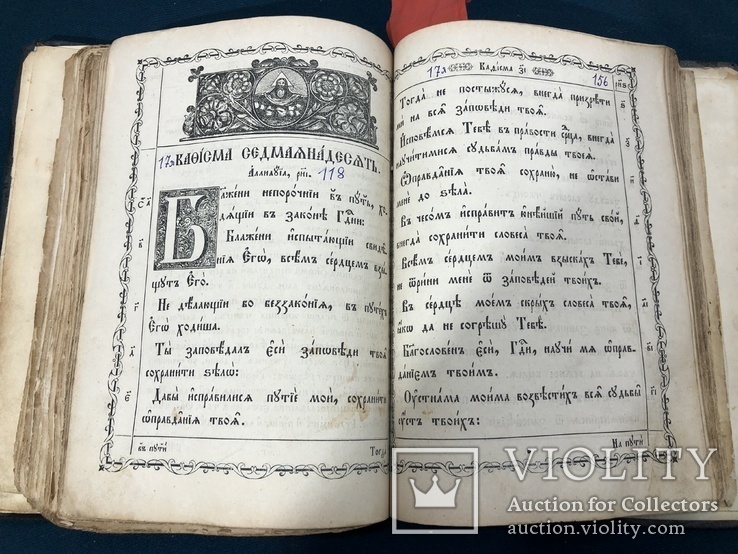 17я КАѲІСМА СЕДМАЯНА́ДЕСЯТЬ.
Аллилꙋїа, рн҃і. 118
Блаже́ни непоро́чнїи въ пꙋть, хо
дящїи въ зако́нѣ Гдⷭ҇ни:
Блаже́ни испыта́ющїи свидѣ
нїѧ Єгѡ̀, всѣмъ се́рдцемъ взы
щꙋтъ Єго̀.
Не дѣ́лающїи бо беззако́нїѧ, въ пꙋте́хъ
Єгѡ̀ ходи́ша.
Ты̀ заповѣ́далъ Єсѝ за́пѡвѣди твоѧ̀
сохрани́ти ѕѣлѡ̀:
Дабы̀ испра́вилисѧ пꙋтїѐ мои̑, сохрани́ти
ѡ҆правда̑нїѧ твоѧ̀.
въ пꙋти̑
Тогда
17я Каѳісма з҃і 156 рн҃ѕ
Тогда̀ не постыжꙋ́сѧ, внегда̀ призрѣ́ти
мѝ на всѧ̑ за́пѡвѣди твоѧ̀.
Исповѣ́мсѧ Тебѣ̀ въ пра́вости се́рдца, внегда̀
наꙋчи́тимисѧ сꙋдьба́мъ пра́вды твоеѧ̀.
Ѡправда̑нїѧ твоѧ̀ сохраню̀, не ѡста́ви
менѐ до ѕѣла̀.
Въ чесо́мъ испра́витъ ю҆нѣ́йшїй пꙋ́ть сво́й,
внегда̀ сохрани́ти словеса̀ твоѧ̀.
Всѣ́мъ се́рдцемъ мои́мъ взыска́хъ Тебѐ,
не ѿри́ни менѐ ѿ за́повѣдей твои́хъ.
Въ се́рдцѣ мое́мъ скры́хъ словеса̀ твоѧ̀,
ꙗкѡ да не согрѣшꙋ̀ Тебѣ̀.
Блгⷭ҇ове́нъ Єсѝ, Гдⷭ҇и, наꙋчи́ мѧ ѡправ
да́нїемъ твои́мъ.
Оустна́ма мои́ма возвѣсти́хъ всѧ̑ сꙋдьбы̀
ꙋ҆́стъ твои́хъ:
На пꙋтѝ
VIOLITY
Auction for Collectors
auction.violity.com